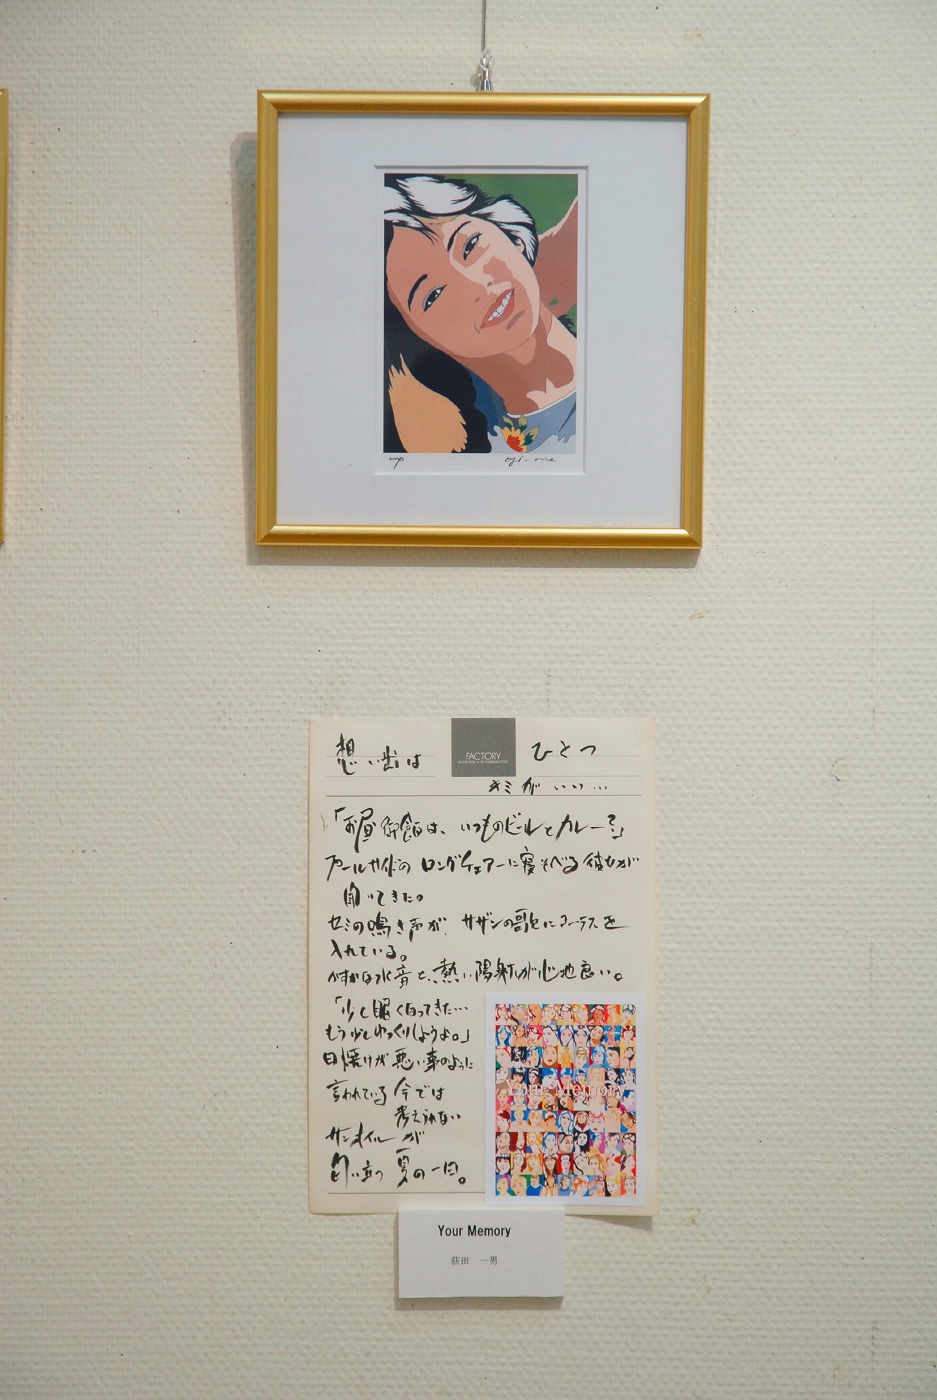 ogi-one
想い出は ひとつ
FACTORY
キミがいい…
「お昼御飯は、いつものビールとカレー?」
プールサイドの ロングチェアーに寝そべる彼女が
聞いてきた。
セミの鳴き声が、サザンの歌にコーラスを
入れている。
かすかな水音と、熱い陽射しが心地良い。
「少し眠くなってきた…
もう少しゆっくりしようよ。」
日焼けが悪い事のように
言われている今では
考えられない
サンオイルが
匂い立つ 夏の一日。
Your Memory
Your Memory
荻田 一男